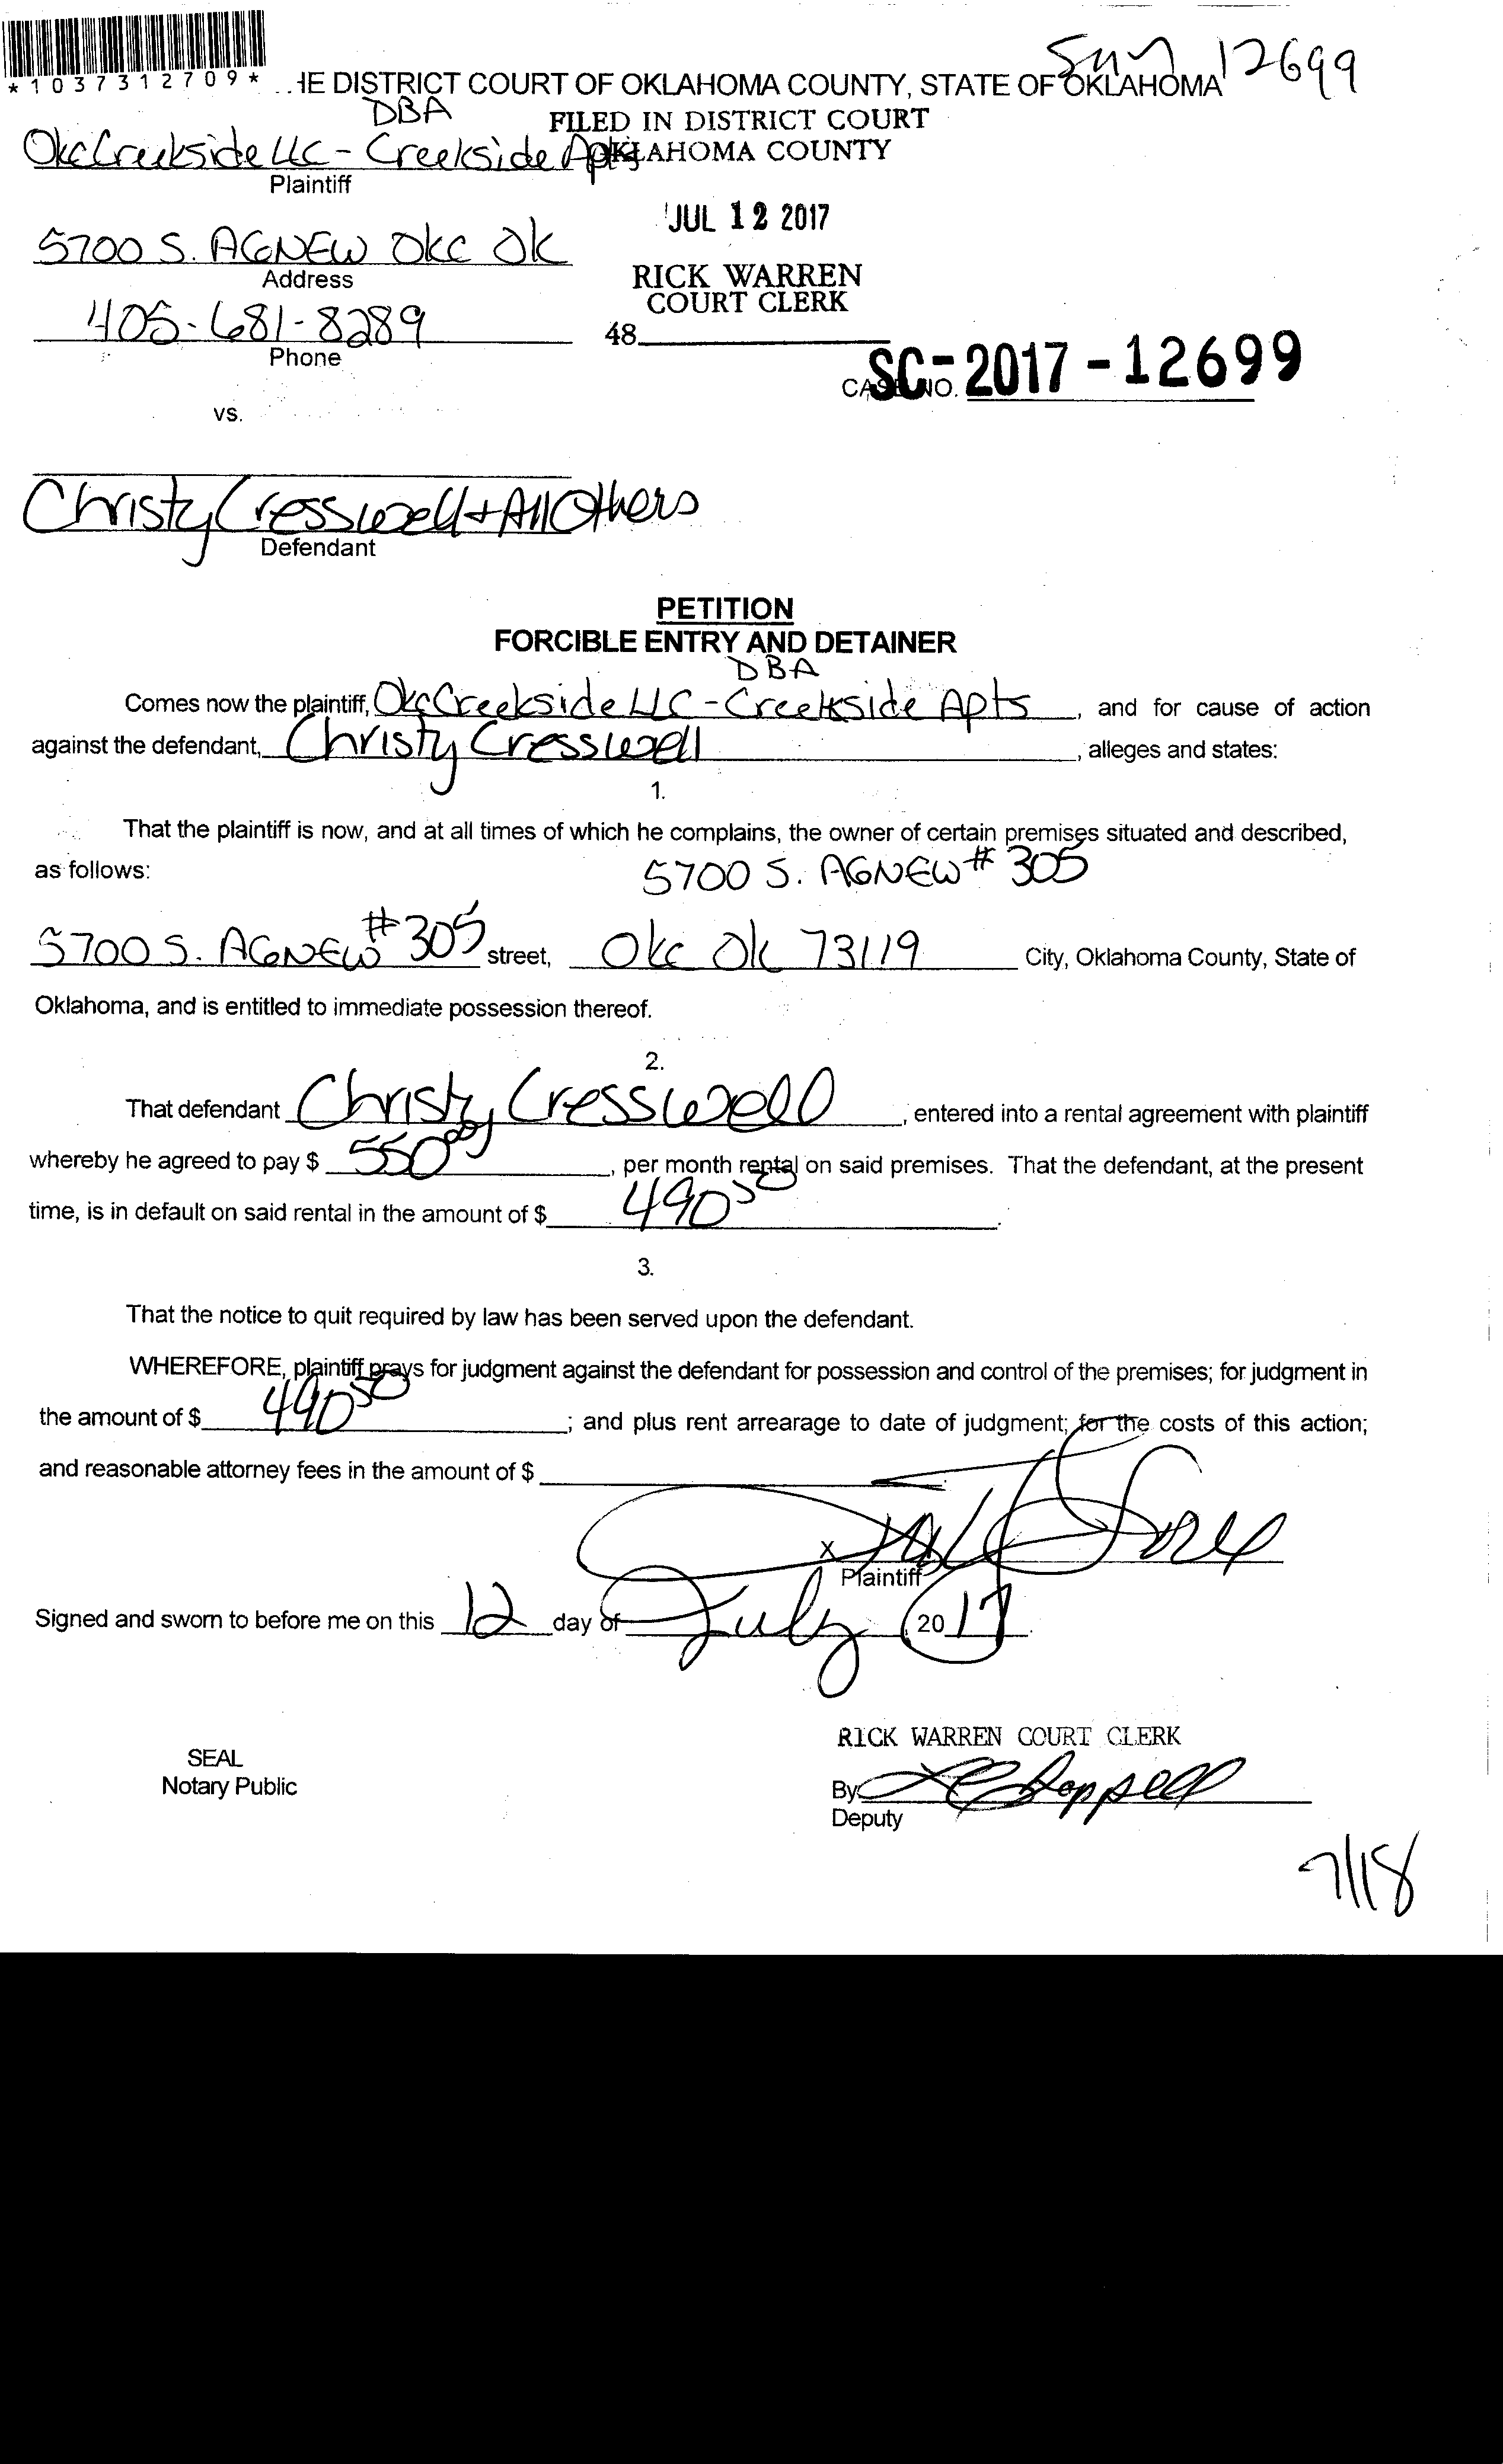 *1037312709*
HE DISTRICT COURT OF OKLAHOMA COUNTY, STATE OF OKLAHOMA 12699
DBA
FILED IN DISTRICT COURT
OkcCreekside LLC - Creekside Apts OKLAHOMA COUNTY
Plaintiff
JUL 12 2017
5700 S. AGNEW OKC OK
Address
RICK WARREN
COURT CLERK
405-681-8289
48
Phone
CASE NO. SC-2017-12699
vs.
Christy Cresswell + All Others
Defendant
PETITION
FORCIBLE ENTRY AND DETAINER
DBA
Comes now the plaintiff, OkcCreekside LLC - Creekside Apts, and for cause of action
against the defendant, Christy Cresswell, alleges and states:
1.
That the plaintiff is now, and at all times of which he complains, the owner of certain premises situated and described,
as follows: 5700 S. AGNEW # 305
5700 S. AGNEW # 305 street, Okc Ok 73119 City, Oklahoma County, State of
Oklahoma, and is entitled to immediate possession thereof.
2.
That defendant Christy Cresswell, entered into a rental agreement with plaintiff
whereby he agreed to pay $ 550.00, per month rental on said premises. That the defendant, at the present
time, is in default on said rental in the amount of $ 490 50.
3.
That the notice to quit required by law has been served upon the defendant.
WHEREFORE, plaintiff prays for judgment against the defendant for possession and control of the premises; for judgment in
the amount of $ 490 50; and plus rent arrearage to date of judgment; for the costs of this action;
and reasonable attorney fees in the amount of $.
X
Plaintiff
Signed and sworn to before me on this 12 day of July, 2017.
RICK WARREN COURT CLERK
SEAL
Notary Public
By
Deputy
7/18